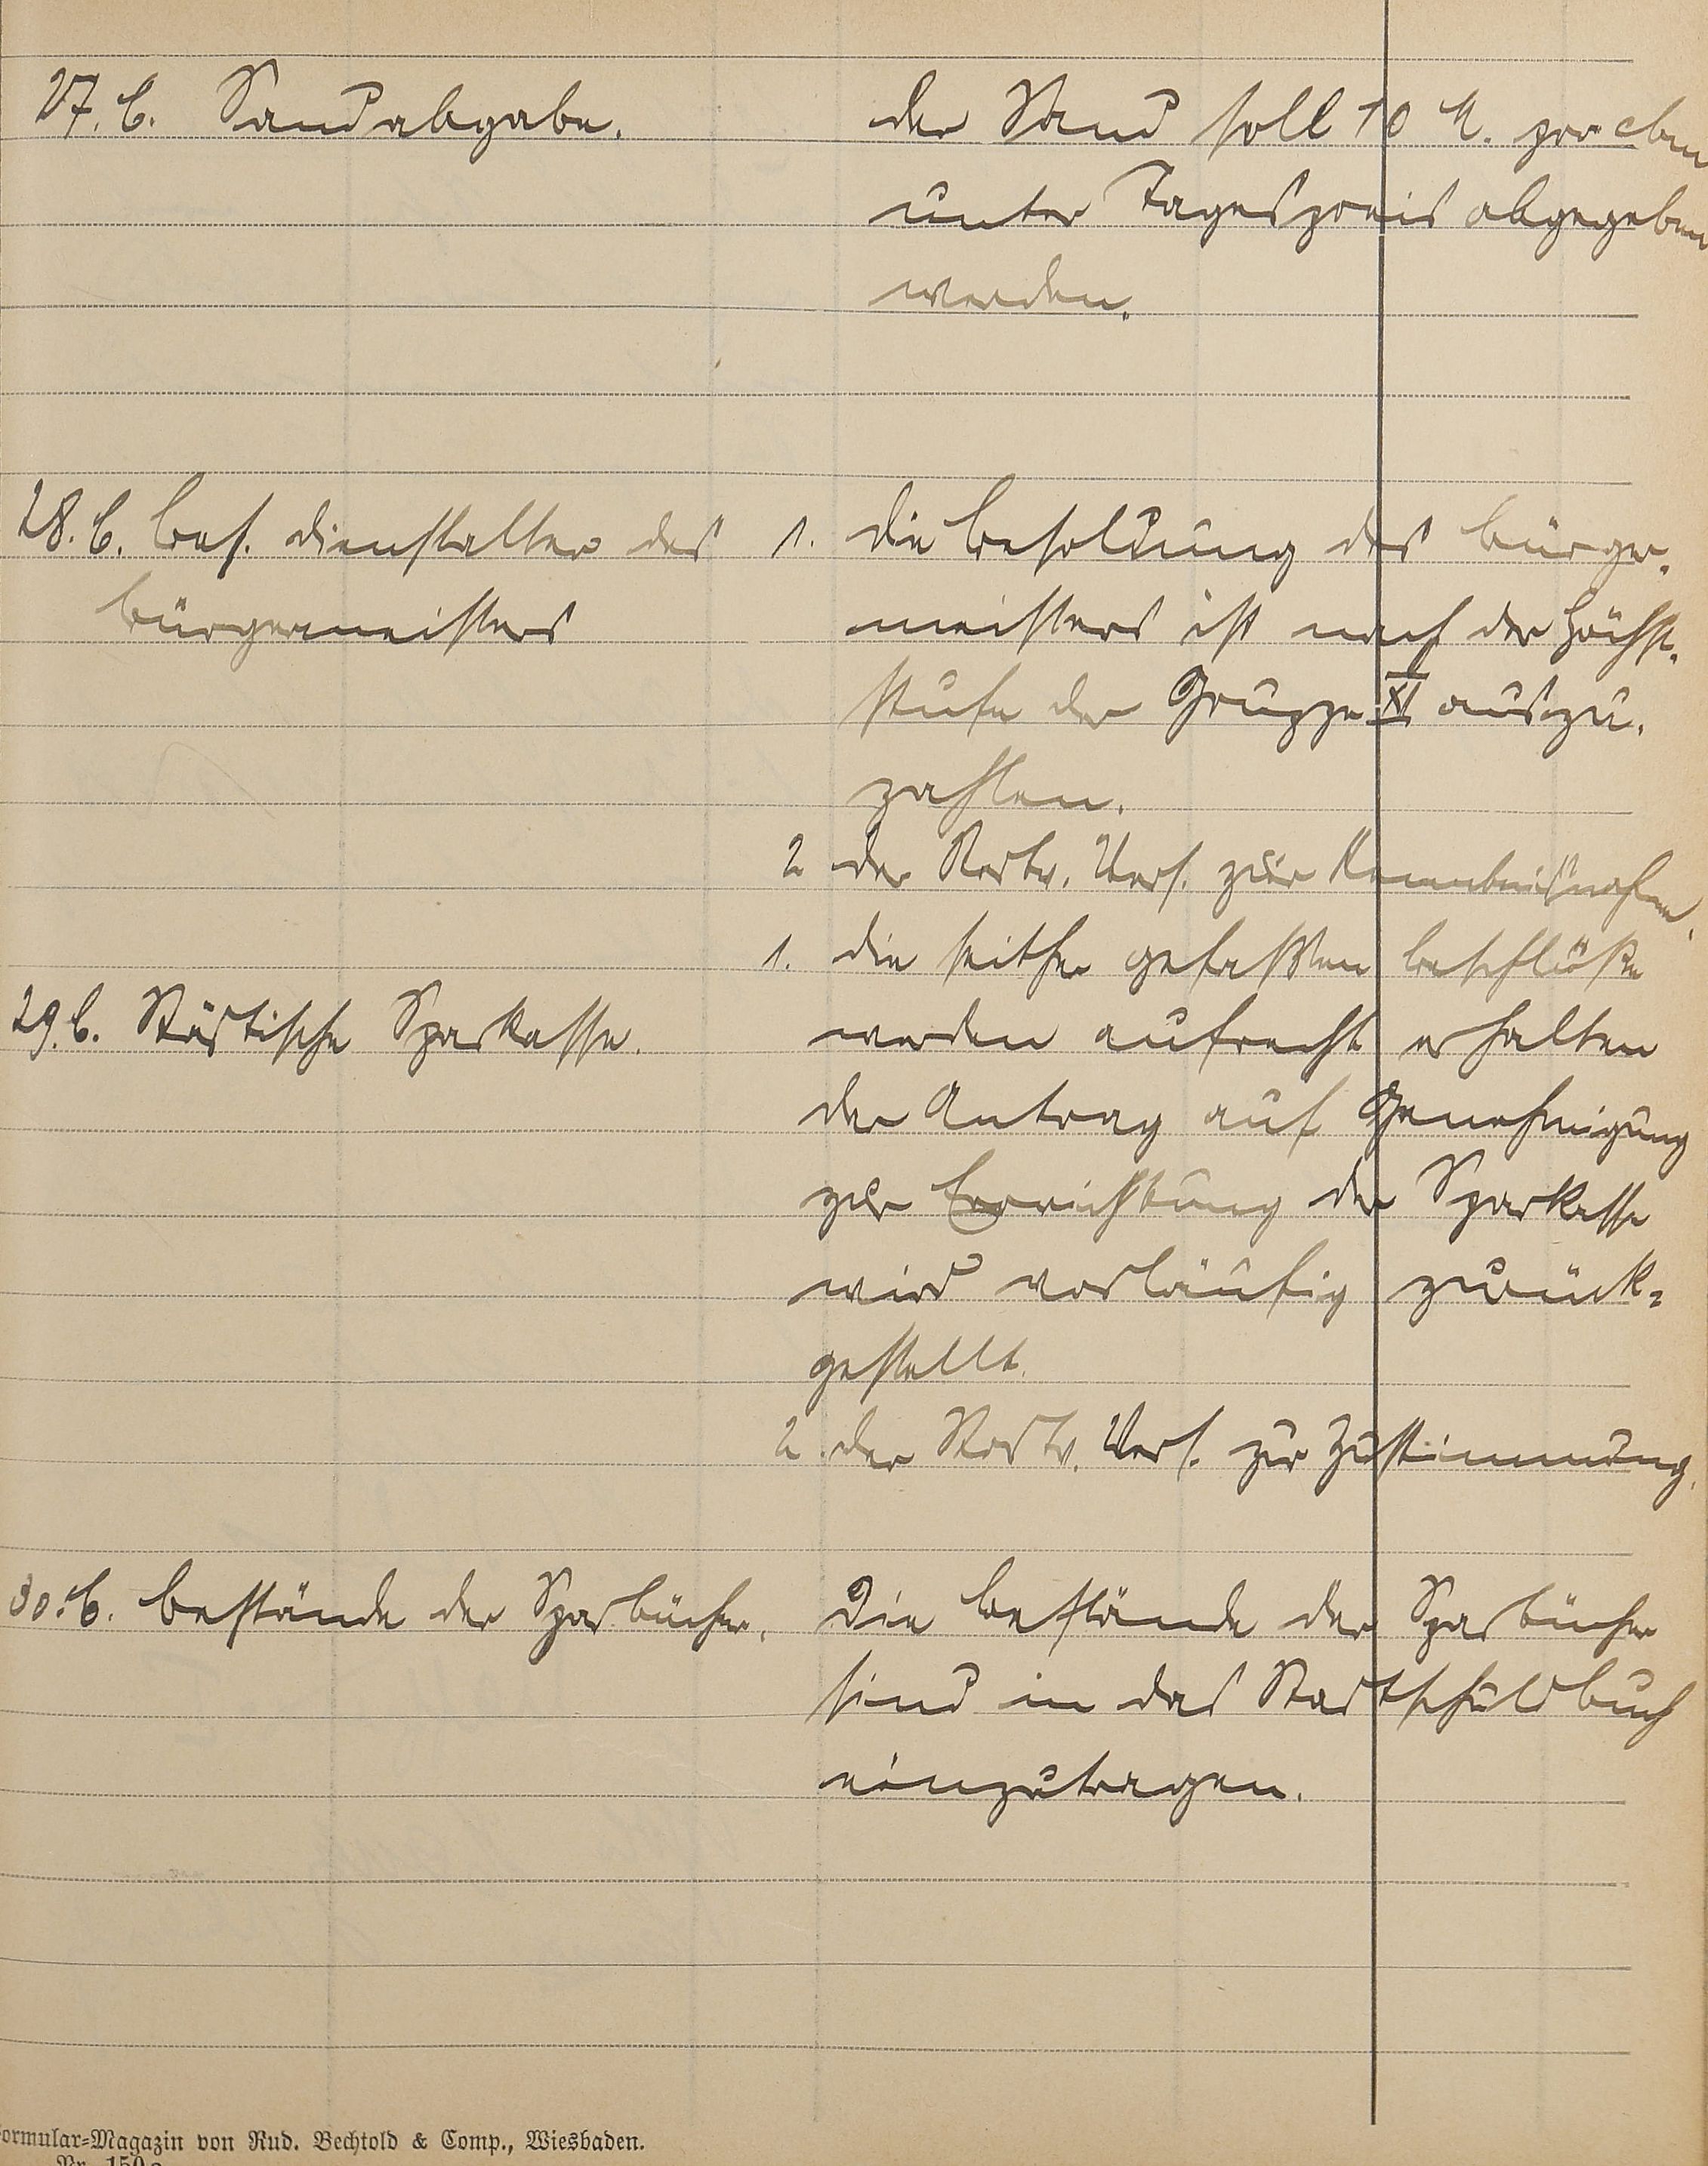 27. b. Sandabgabe.
der Sand soll 10 M. pro cbm
unter Tagespreis abgegeben
werden.
28. b. Bes. dienstalter des
Bürgermeisters
1. die Besoldung des Bürger-
meisters ist nach der Höchst-
stufe der Gruppe XI auszu-
zahlen.
2 der Stadtv. Vers. zur Kenntnisnahme.
29. b. Städtische Sparkasse.
1. die seither gefaßten Beschlüße
werden aufrecht erhalten
der Antrag auf Genehmigung
zur Errichtung der Sparkasse
wird vorläufig zurück-
gestellt.
2. der Stadtv. Vers. zur Zustimmung.
30. b. Bestände der Sparbücher.
Die Bestände der Sparbücher
sind in das Stadtschuldbuch
einzutragen.
ormular-Magazin von Rud. Bechtold & Comp., Wiesbaden.
Nr. 150